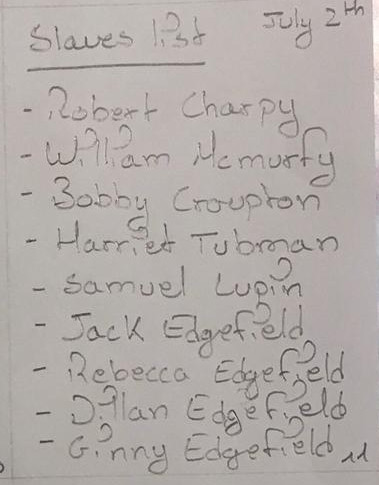 Slaves list July 2th
- Robert Charpy
- William Mcmurfy
- Bobby Croupton
- Harriet Tubman
- Samuel Lupin
- Jack Edgefield
- Rebecca Edgefield
- Dillan Edgefield
- Ginny Edgefield